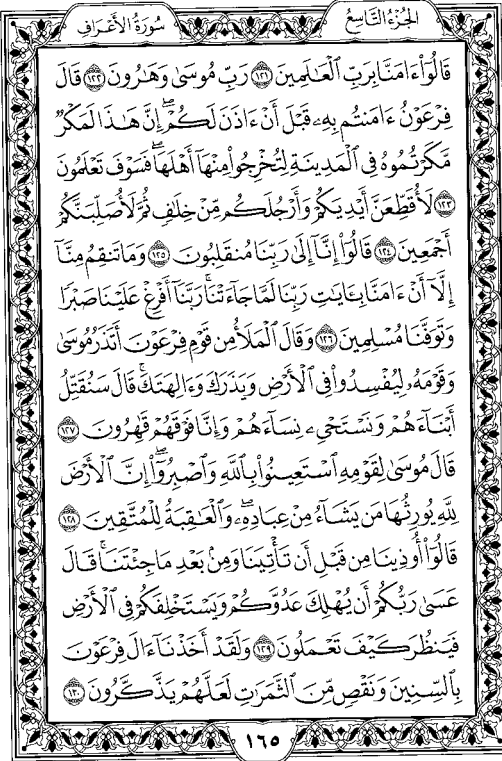 سُورَةُ الأَعْرَافِ
الجُزْءُ التَّاسِعُ
قَالُوٓا۟ ءَامَنَّا بِرَبِّ ٱلْعَٰلَمِينَ ١٢١ رَبِّ مُوسَىٰ وَهَٰرُونَ ١٢٢ قَالَ
فِرْعَوْنُ ءَامَنتُم بِهِۦ قَبْلَ أَنْ ءَاذَنَ لَكُمْ ۖ إِنَّ هَٰذَا لَمَكْرٌ
مَّكَرْتُمُوهُ فِى ٱلْمَدِينَةِ لِتُخْرِجُوا۟ مِنْهَآ أَهْلَهَا ۖ فَسَوْفَ تَعْلَمُونَ
١٢٣ لَأُقَطِّعَنَّ أَيْدِيَكُمْ وَأَرْجُلَكُم مِّنْ خِلَٰفٍ ثُمَّ لَأُصَلِّبَنَّكُمْ
أَجْمَعِينَ ١٢٤ قَالُوٓا۟ إِنَّآ إِلَىٰ رَبِّنَا مُنقَلِبُونَ ١٢٥ وَمَا تَنقِمُ مِنَّآ
إِلَّآ أَنْ ءَامَنَّا بِـَٔايَٰتِ رَبِّنَا لَمَّا جَآءَتْنَا ۚ رَبَّنَآ أَفْرِغْ عَلَيْنَا صَبْرًا
وَتَوَفَّنَا مُسْلِمِينَ ١٢٦ وَقَالَ ٱلْمَلَأُ مِن قَوْمِ فِرْعَوْنَ أَتَذَرُ مُوسَىٰ
وَقَوْمَهُۥ لِيُفْسِدُوا۟ فِى ٱلْأَرْضِ وَيَذَرَكَ وَءَالِهَتَكَ ۚ قَالَ سَنُقَتِّلُ
أَبْنَآءَهُمْ وَنَسْتَحْىِۦ نِسَآءَهُمْ وَإِنَّا فَوْقَهُمْ قَٰهِرُونَ ١٢٧
قَالَ مُوسَىٰ لِقَوْمِهِ ٱسْتَعِينُوا۟ بِٱللَّهِ وَٱصْبِرُوٓا۟ ۖ إِنَّ ٱلْأَرْضَ
لِلَّهِ يُورِثُهَا مَن يَشَآءُ مِنْ عِبَادِهِۦ ۖ وَٱلْعَٰقِبَةُ لِلْمُتَّقِينَ ١٢٨
قَالُوٓا۟ أُوذِينَا مِن قَبْلِ أَن تَأْتِيَنَا وَمِنۢ بَعْدِ مَا جِئْتَنَا ۚ قَالَ
عَسَىٰ رَبُّكُمْ أَن يُهْلِكَ عَدُوَّكُمْ وَيَسْتَخْلِفَكُمْ فِى ٱلْأَرْضِ
فَيَنظُرَ كَيْفَ تَعْمَلُونَ ١٢٩ وَلَقَدْ أَخَذْنَآ ءَالَ فِرْعَوْنَ
بِٱلسِّنِينَ وَنَقْصٍ مِّنَ ٱلثَّمَرَٰتِ لَعَلَّهُمْ يَذَّكَّرُونَ ١٣٠
١٦٥